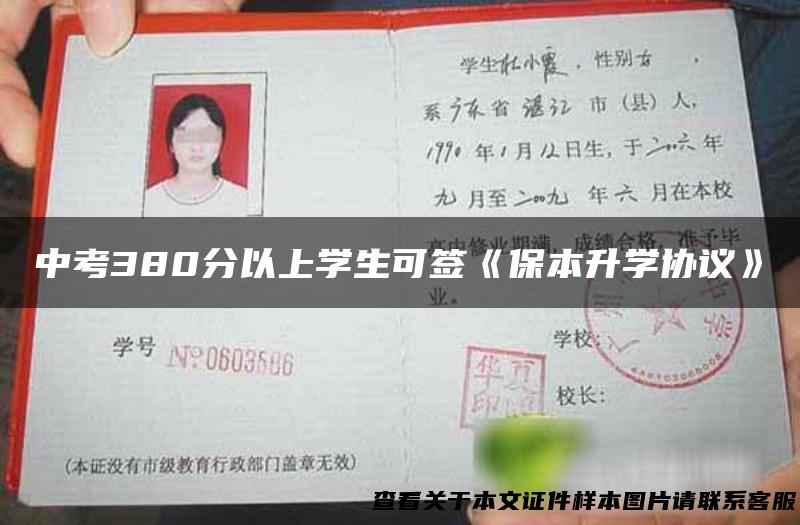 学生杜小霞，性别女，
系广东省湛江市（县）人，
1990年1月12日生，于二〇〇六年
九月至二〇〇九年六月在本校
高中修业期满，成绩合格，准予毕
中考380分以上学生可签《保本升学协议》
业。
学号 №0603586
学校：
4401030000008
校长：
（本证没有市级教育行政部门盖章无效）
查看关于本文证件样本图片请联系客服